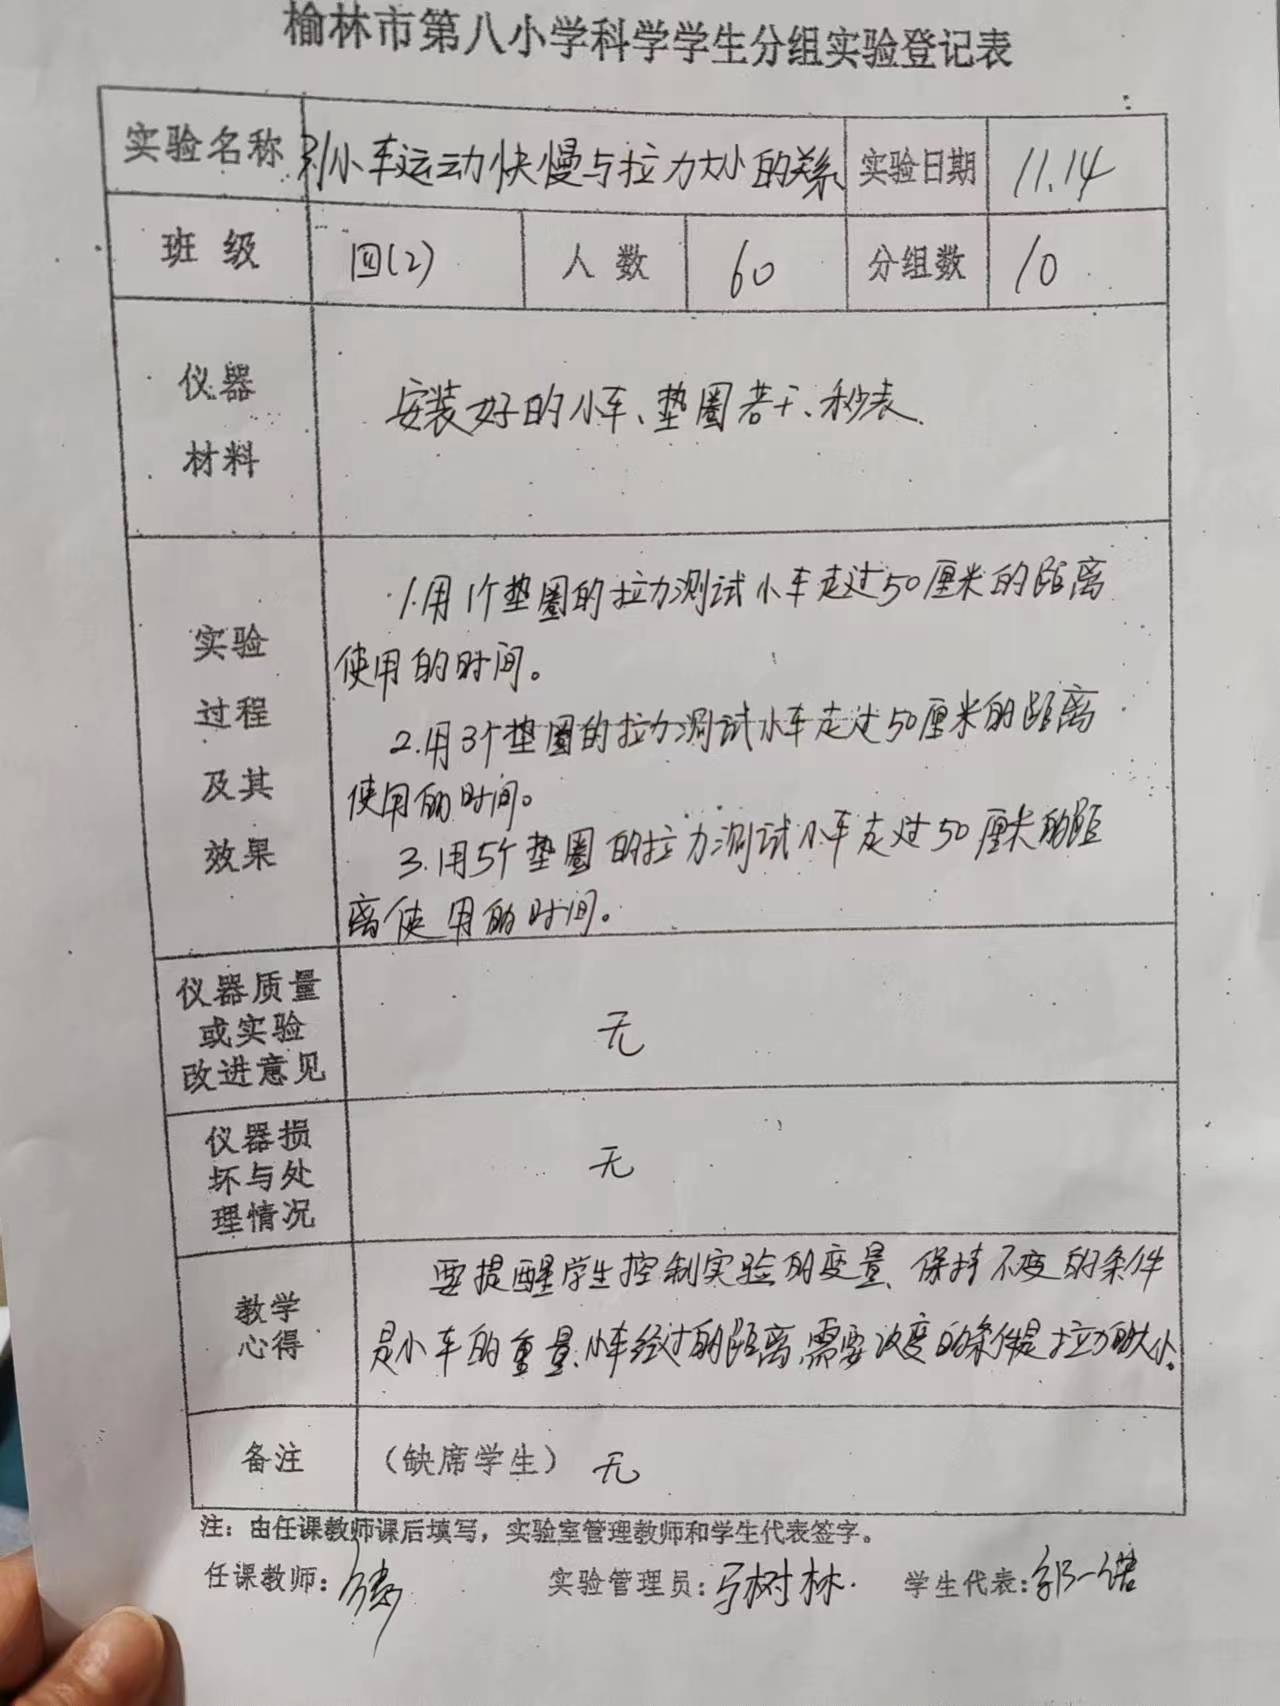 榆林市第八小学科学学生分组实验登记表
实验名称 测小车运动快慢与拉力大小的关系 实验日期 11.14
班级 四(2) 人数 60 分组数 10
仪器 安装好的小车、垫圈若干、秒表.
材料
1.用1个垫圈的拉力测试小车走过50厘米的距离
实验 使用的时间。
过程 2.用3个垫圈的拉力测试小车走过50厘米的距离
及其 使用的时间。
效果 3.用5个垫圈的拉力测试小车走过50厘米的距
离使用的时间。
仪器质量
或实验 无
改进意见
仪器损
坏与处 无
理情况
教学 要提醒学生控制实验的变量、保持不变的条件
心得 是小车的重量、小车经过的距离,需要改变的条件是拉力的大小。
备注 (缺席学生) 无
注:由任课教师课后填写,实验室管理教师和学生代表签字。
任课教师: 实验管理员:马树林. 学生代表:郭一诺